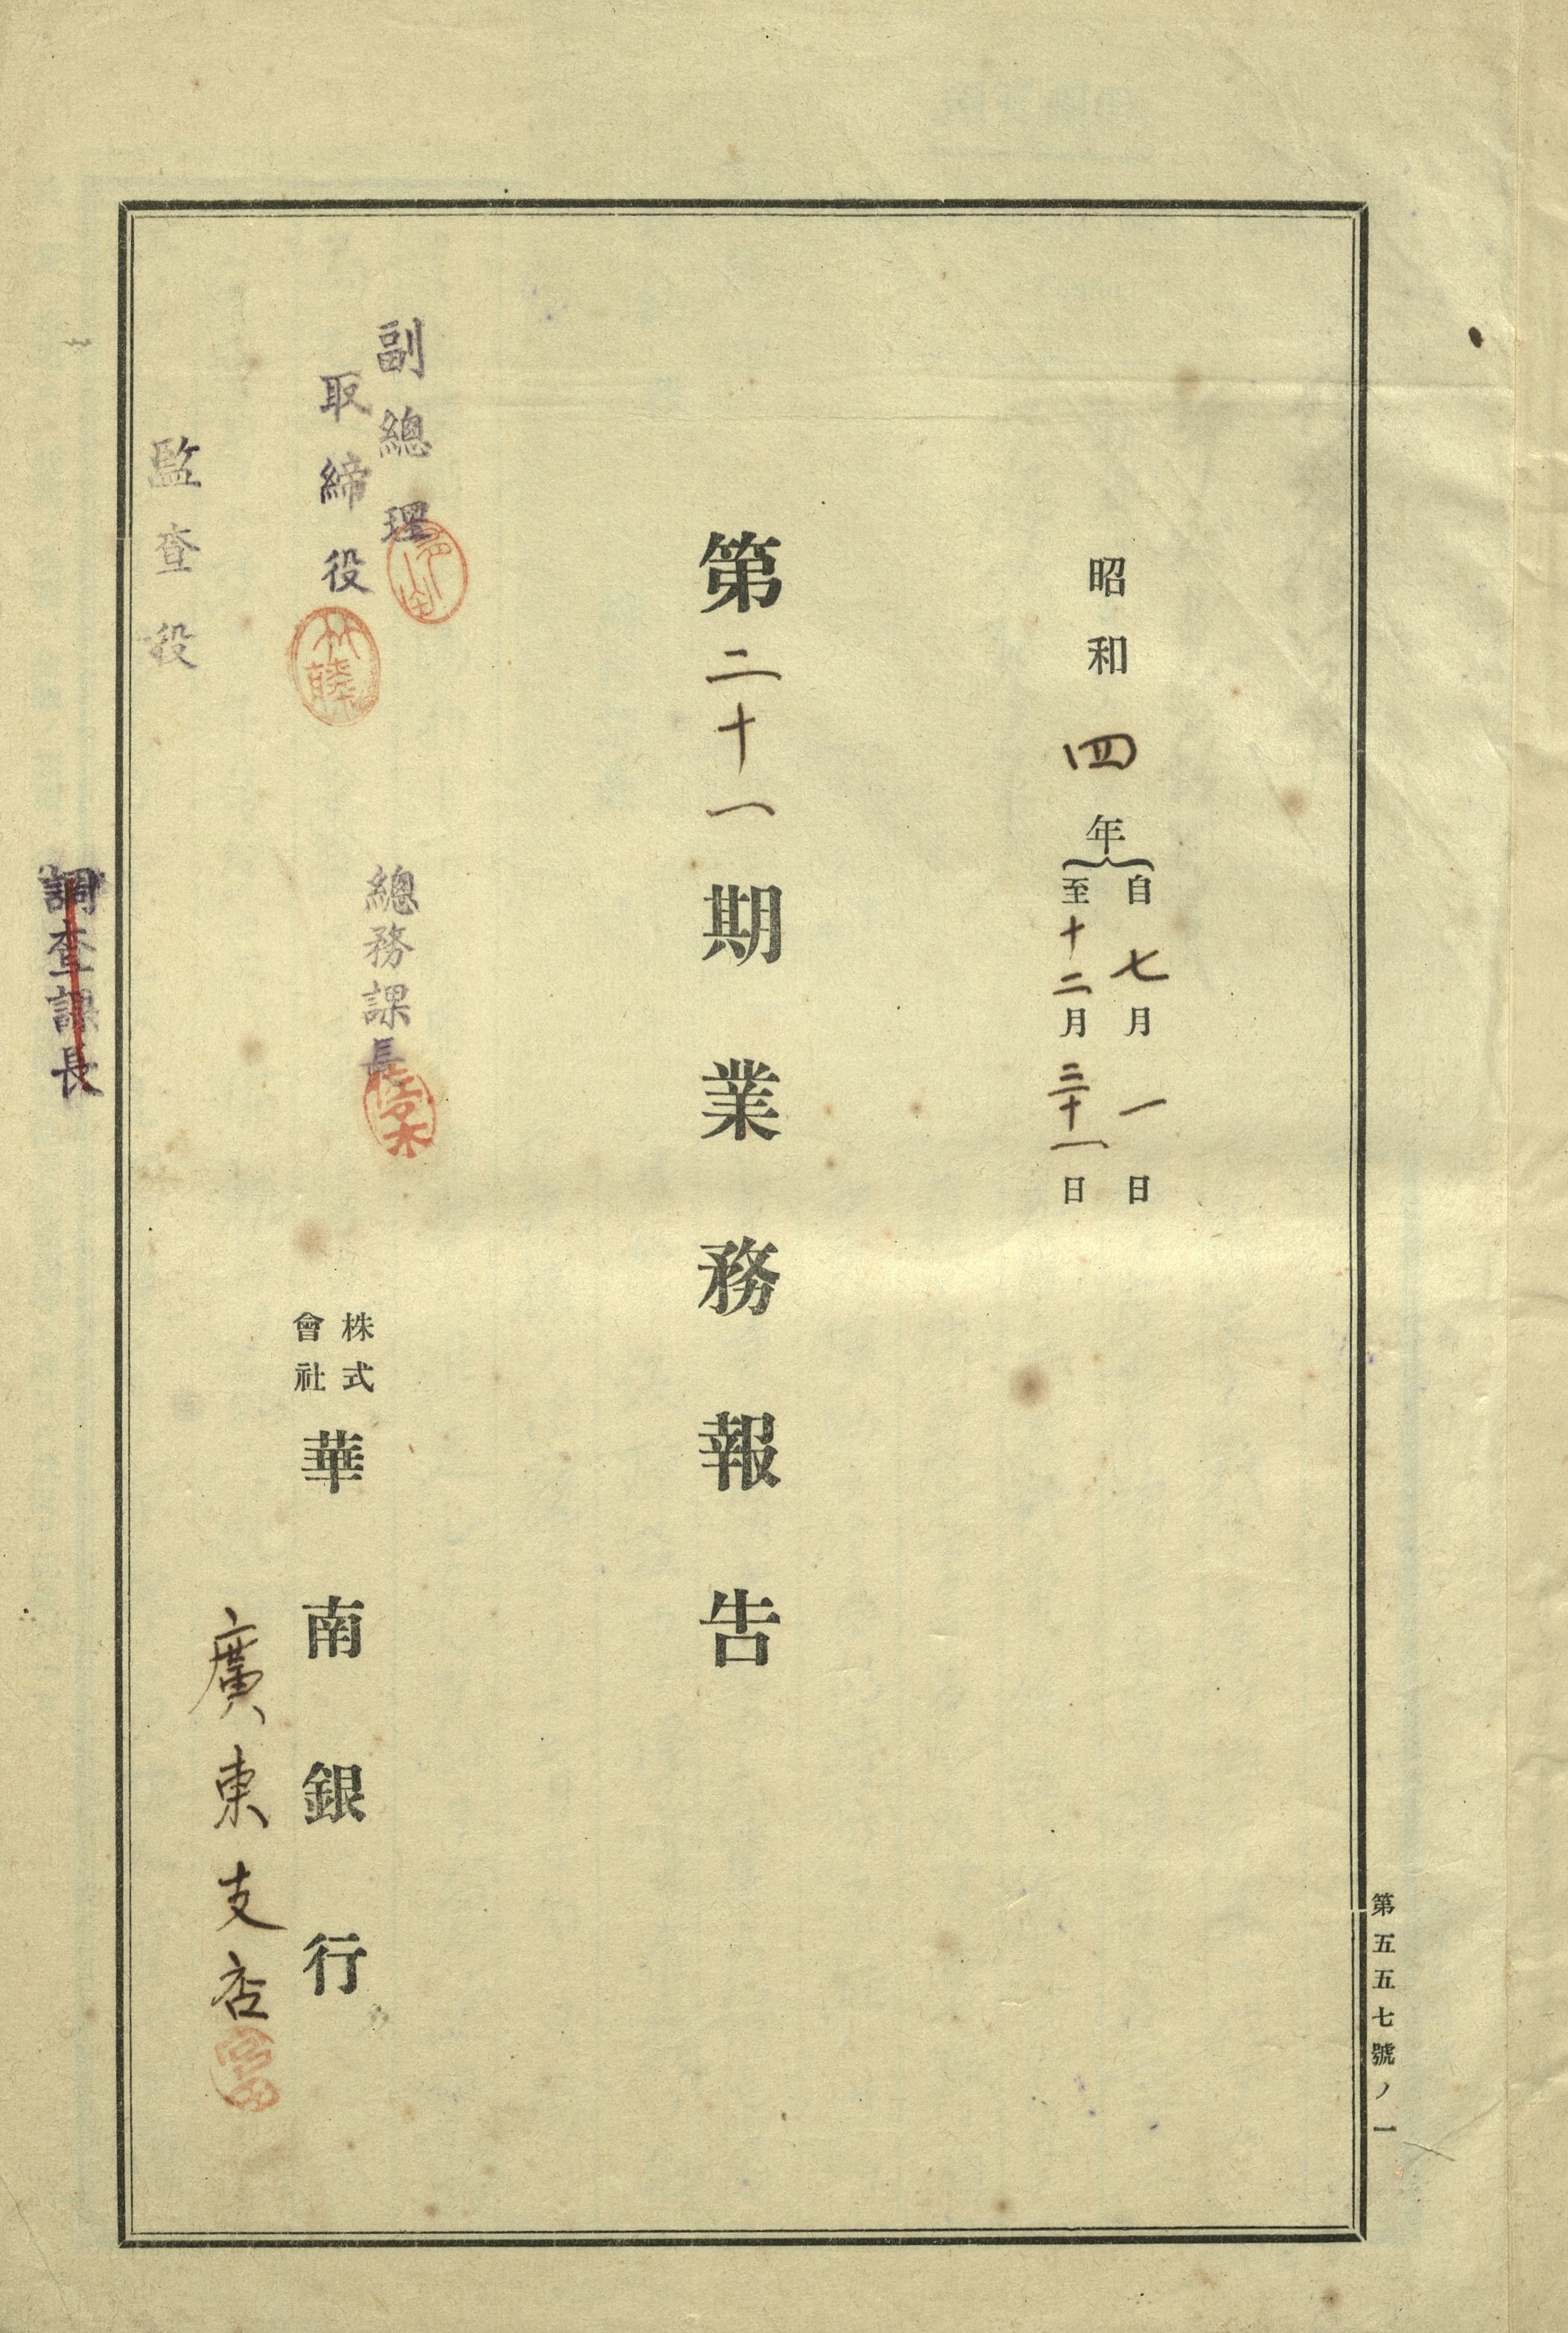 第五五七號ノ一
昭和四年
自七月一日
至十二月三十一日
第二十一期業務報告
副總理
取締役
監査役
總務課長
佐々木
調査課長
株式
會社
華南銀行
廣東支店